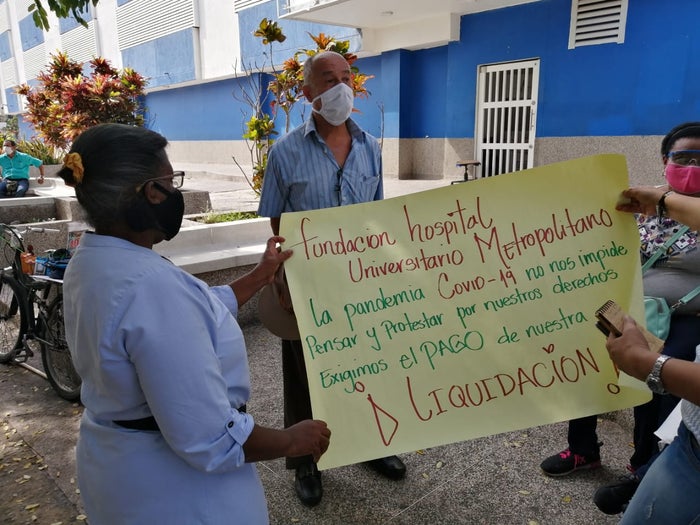 fundación hospital
Universitario Metropolitano
La pandemia Covid-19 no nos impide
Pensar y Protestar por nuestros derechos
Exigimos el PAGO de nuestra
¡ LIQUIDACIÓN !